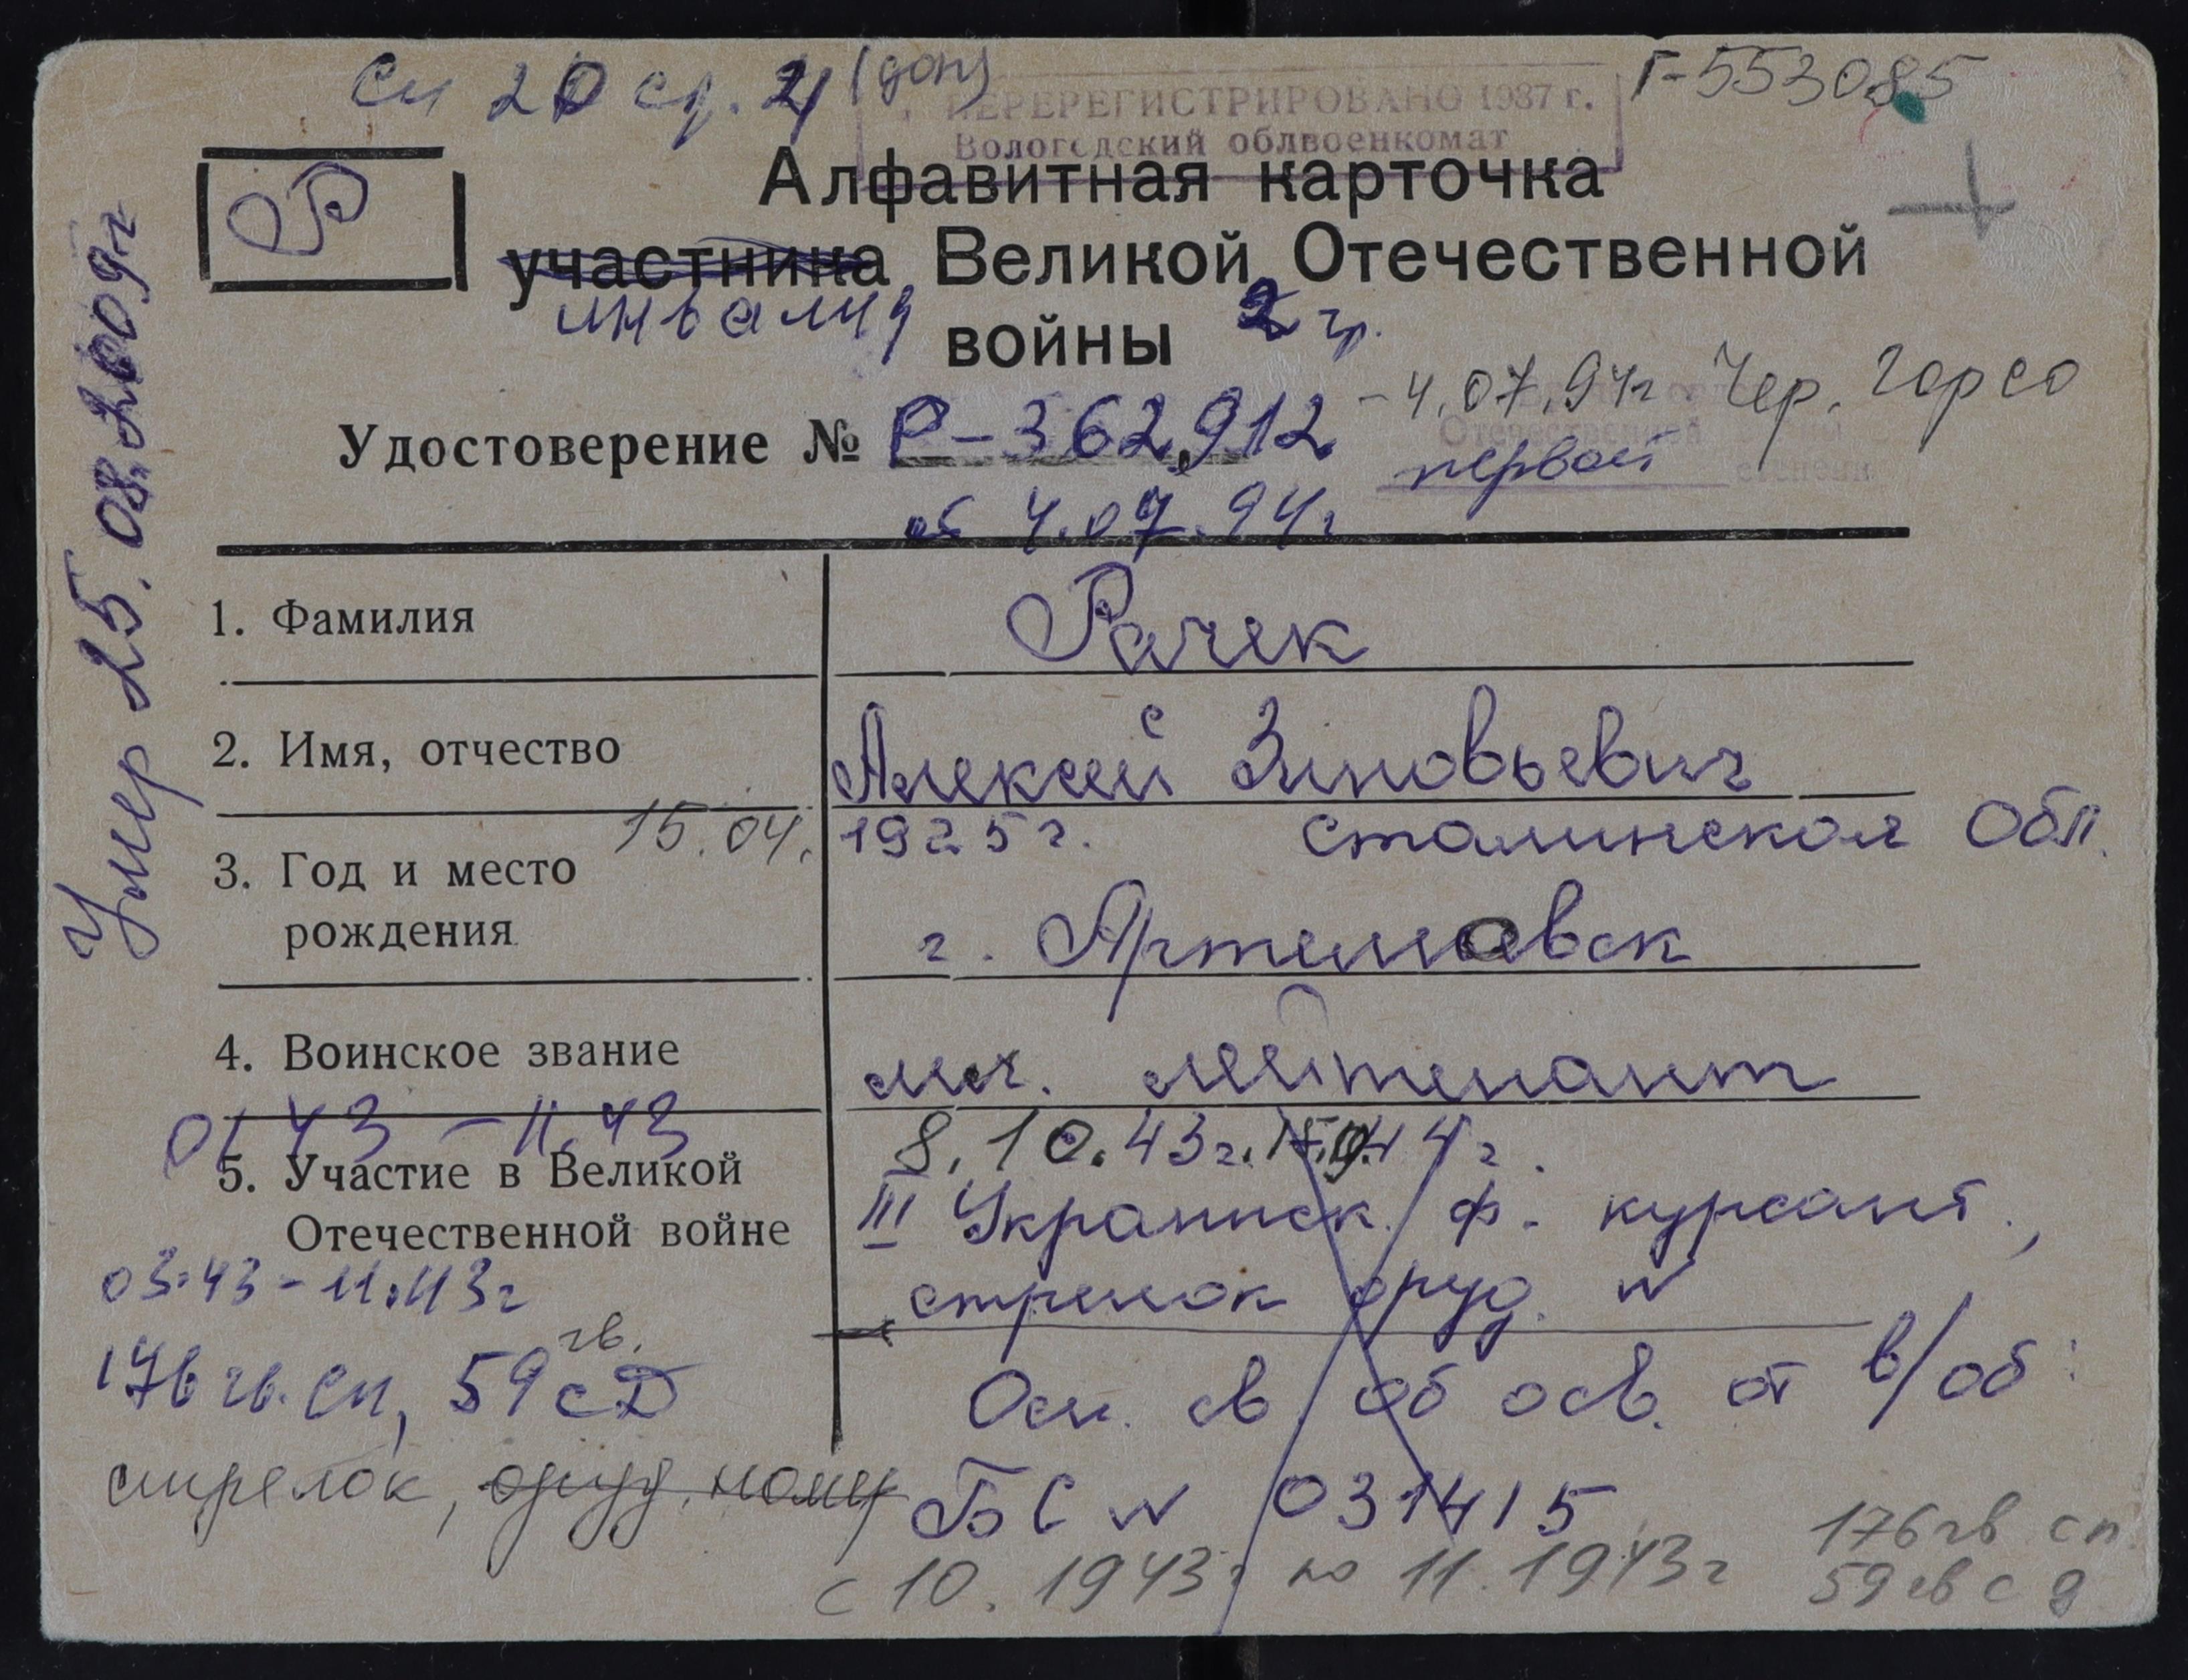 См 20 ед. 21 (доп)
Г-553085
ПЕРЕРЕГИСТРИРОВАНО 1987 г.
Вологодский облвоенкомат
Р
Алфавитная карточка
участника Великой Отечественной
инвалид войны 2 гр.
- 4.07.94г Чер. Горсо
Удостоверение № Р-362912
Отечественной
первой степени
от 4.07.94г
Умер 25.08.2009г
1. Фамилия Рачек
2. Имя, отчество Алексей Зиновьевич
3. Год и место 15.04. 1925г. Сталинская Обл.
рождения г. Артемовск
4. Воинское звание мл. лейтенант
01 43 - 11.43
8.10.43г. 44г.
5. Участие в Великой
III Украинск. ф. курсант,
Отечественной войне
03.43 - 11.43г
стрелок оруд. №
гв.
176 гв. сп, 59 сД
Осн. св об осв. от в/об:
стрелок, оруд. номер
БС № 031415
с 10.1943г по 11.1943г
176 гв сп
59 гв с д